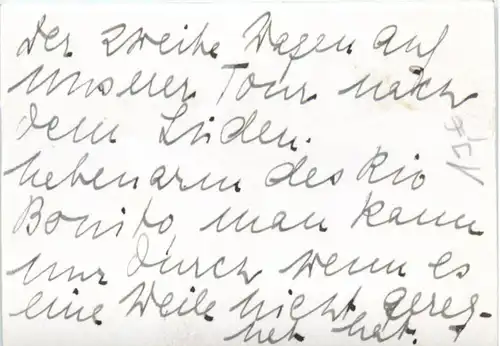 Der zweite Wagen auf
unserer Tour nach
dem Süden.
Nebenarm des Rio
Bonito, man kann
nur durch wenn es
eine Weile nicht gereg-
net hat.